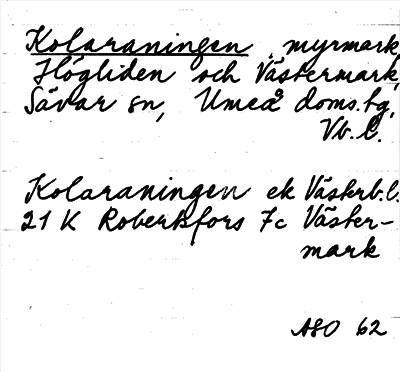 Kolaraningen, myrmark,
Högliden och Västermark,
Sävar sn, Umeå doms.hg,
Vb.l.
Kolaraningen ek Västerb.l.
21 K Robertsfors 7c Väster-
mark
ASO 62